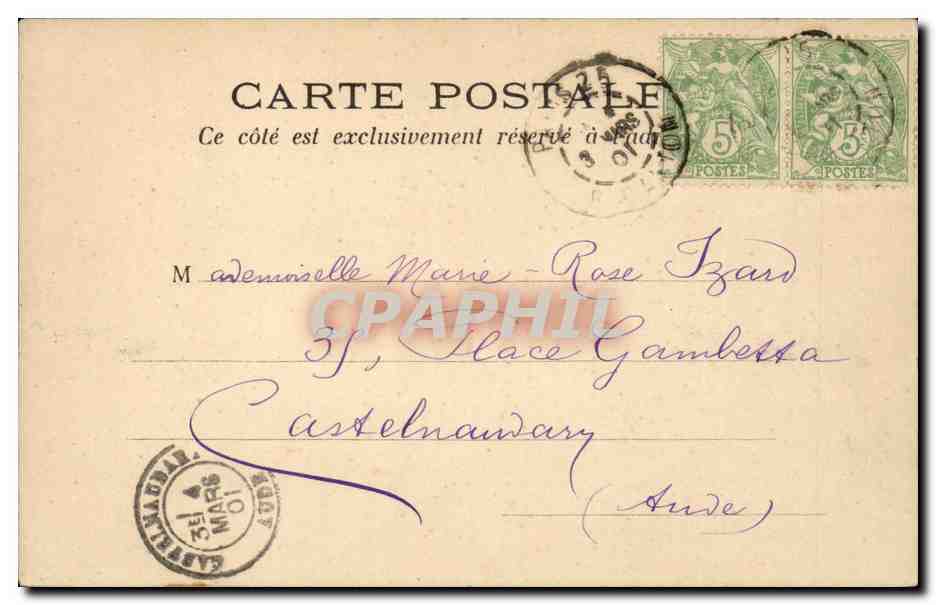 CARTE POSTALE
Ce côté est exclusivement réservé à l'adr
PARIS 25
3 MARS 01
5
POSTES
5
POSTES
Mademoiselle Marie-Rose Izard
CPAPHIL
35, Place Gambetta
Castelnaudary
(Aude)
CASTELNAUDARY AUDE
3E 4
MARS
01